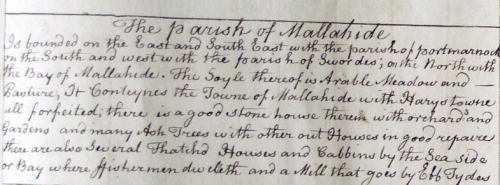 The parish of Mallahide
Is bounded on the East and South East with the parish of portmarnock
on the South and west with the parish of Swordes; on the North with
the Bay of Mallahide. The Soyle thereof is Arable Meadow and —
Pasture, It Conteynes the Towne of Mallahide with Harystowne
all forfeited; there is a good stone house therein with orchard and
Gardens and many Ash Trees with other out Houses in good repaire
there are also Several Thatchd Houses and Cabbins by the Sea side
or Bay where ffishermen dwelleth and a Mill that goes by Ebb Tydes